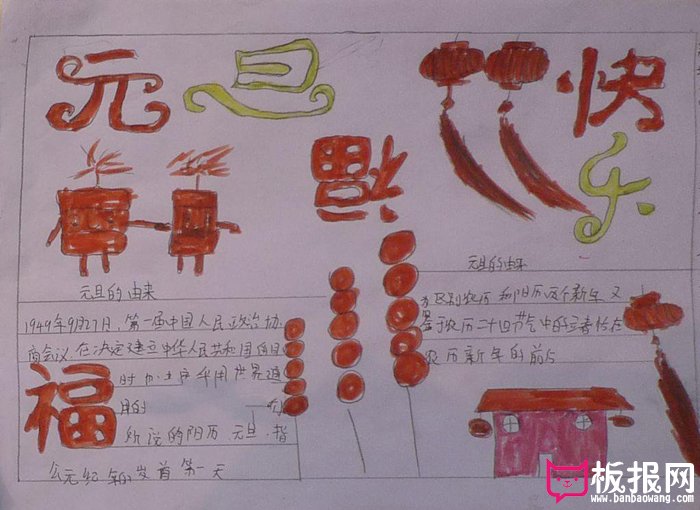 元旦 快乐
福
元旦的由来
1949年9月27日,第一届中国人民政治协
商会议,在决定建立中华人民共和国的同
时 也 采用世界通
用的
所说的阳历 元旦,指
公元纪年的岁首第一天
福
元旦的由来
为区别农历和阳历两个新年 又
农历二十四节气中的立春恰在
农历新年的前后
板报网
www.banbaowang.com